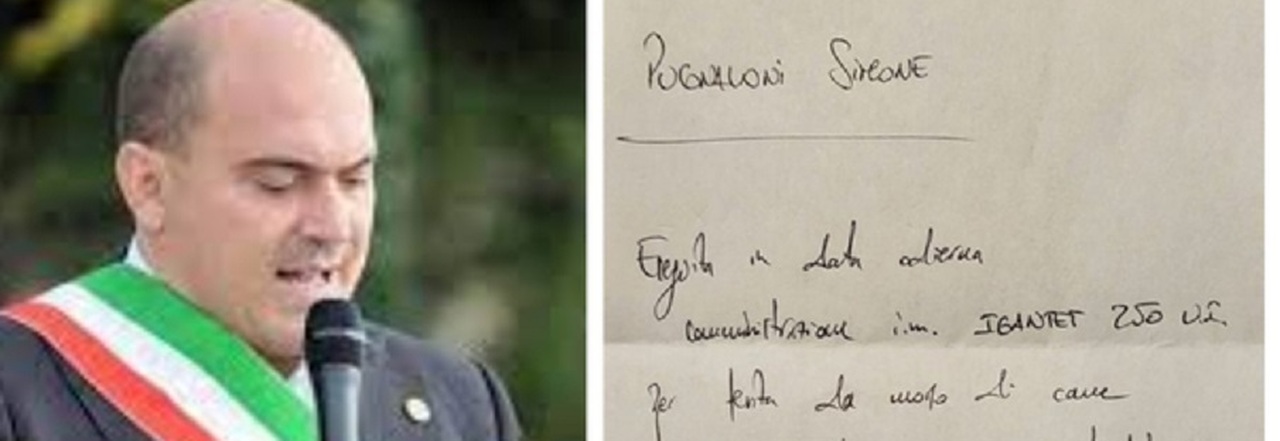 PUGNALONI SIMONE
Eseguita in data odierna
somministrazione i.m. IGANTET 250 U.I.
per ferita da morso di cane